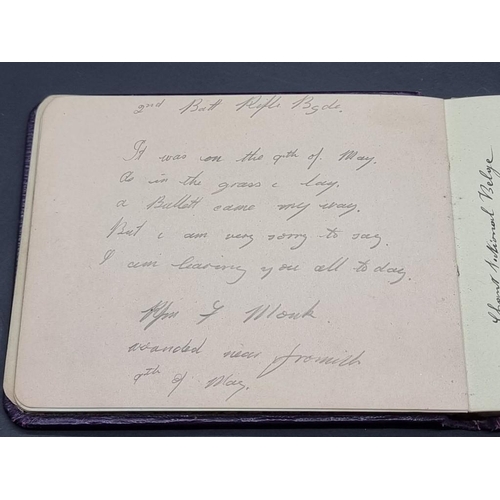 2nd Batt Rifle Bgde.
It was on the 9th of May.
As in the grass i lay.
a Bullett came my way.
But i am very sorry to say
I am leaving you all to day.
Rfm F Monk
wounded near Fromelle
9th of May.
Chant National Belge